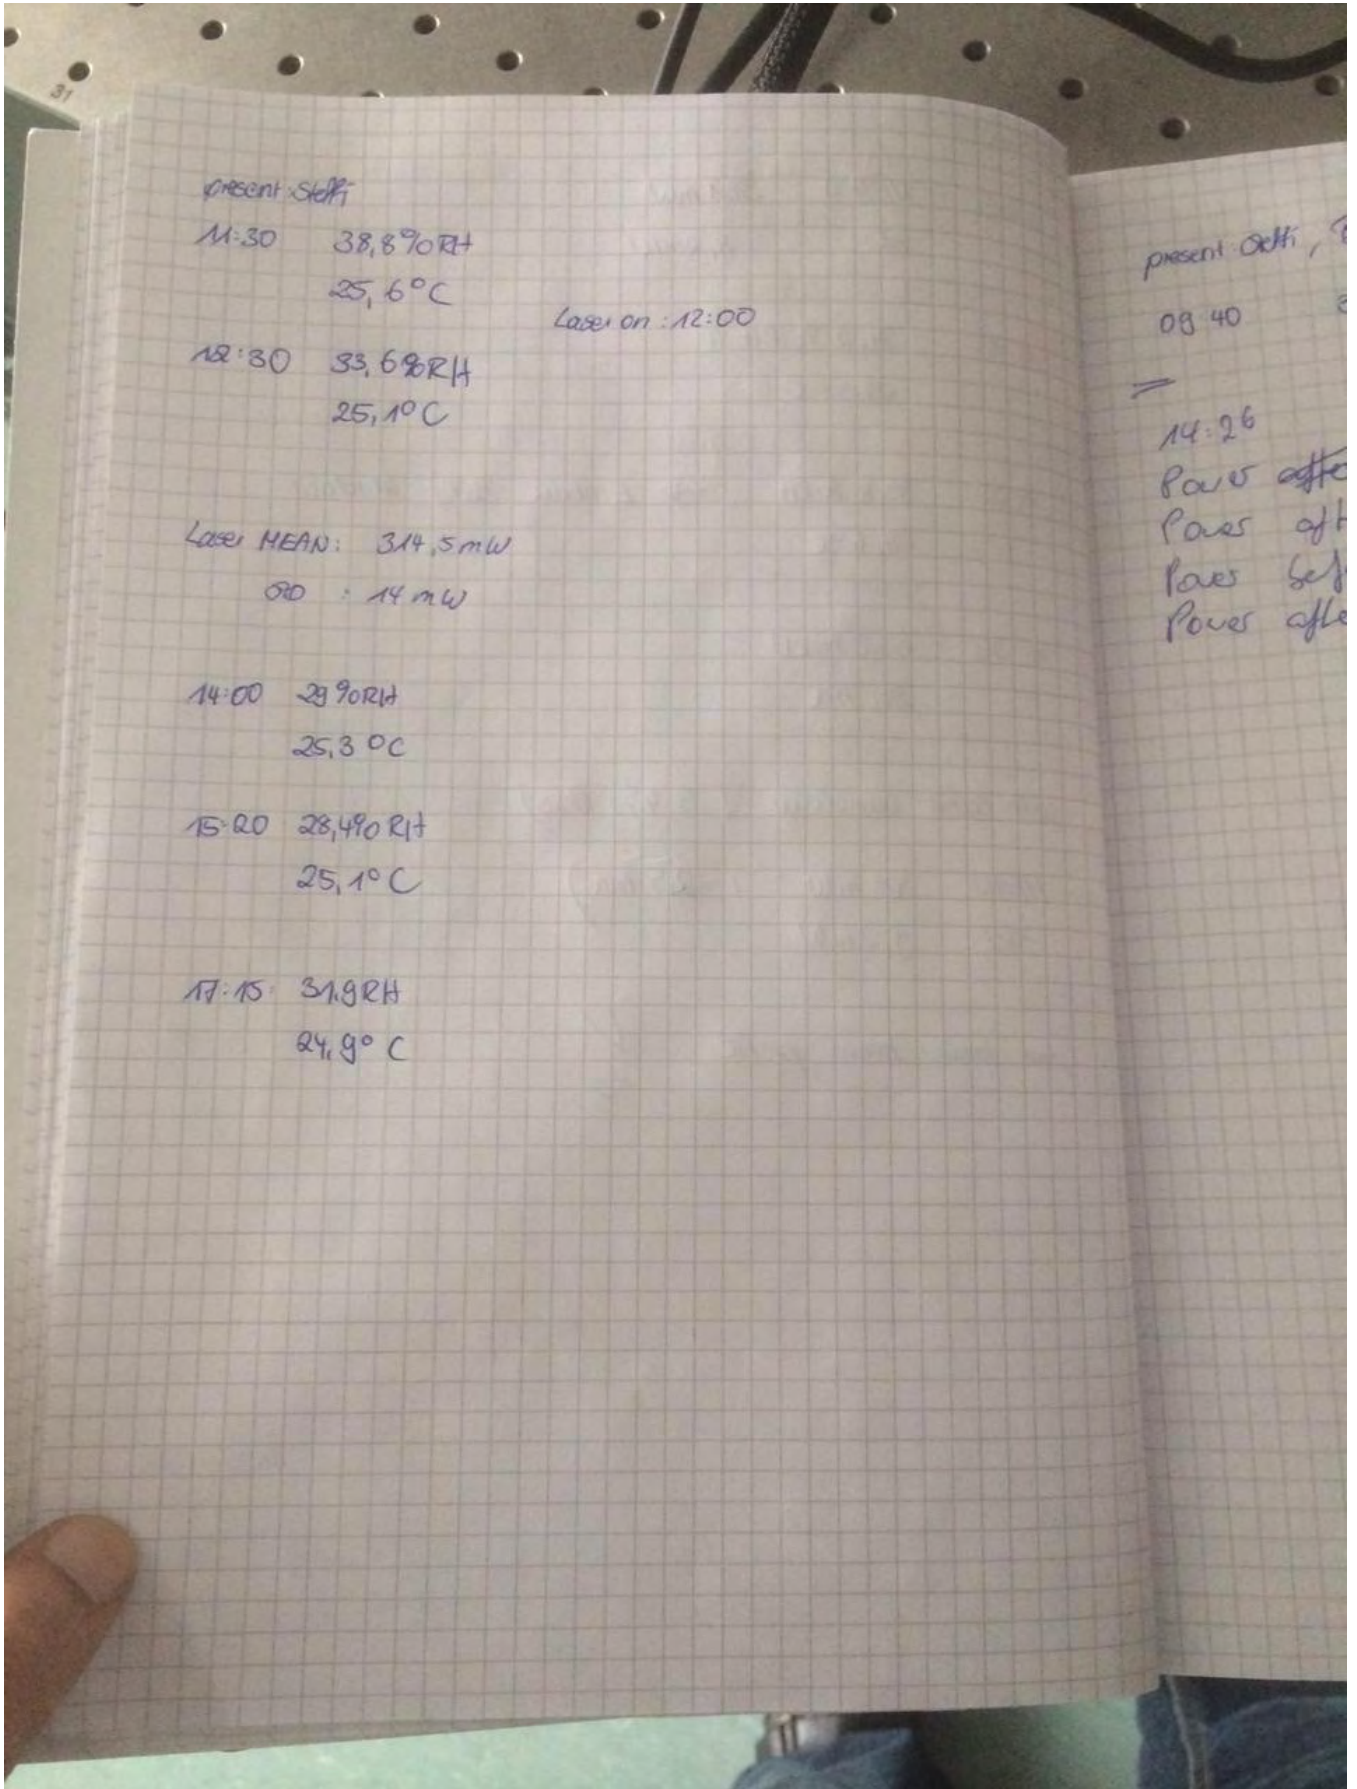 31
present: Steffi
11:30 38,8%RH
25,6°C
Laser on: 12:00
12:30 33,6%RH
25,1°C
Laser MEAN: 314,5mW
: 14mW
14:00 29%RH
25,3°C
15:20 28,4%RH
25,1°C
17:15: 31,9RH
24,9°C
present Steffi,
09:40
14:26
Power
Power aft
Power bef
Power afte